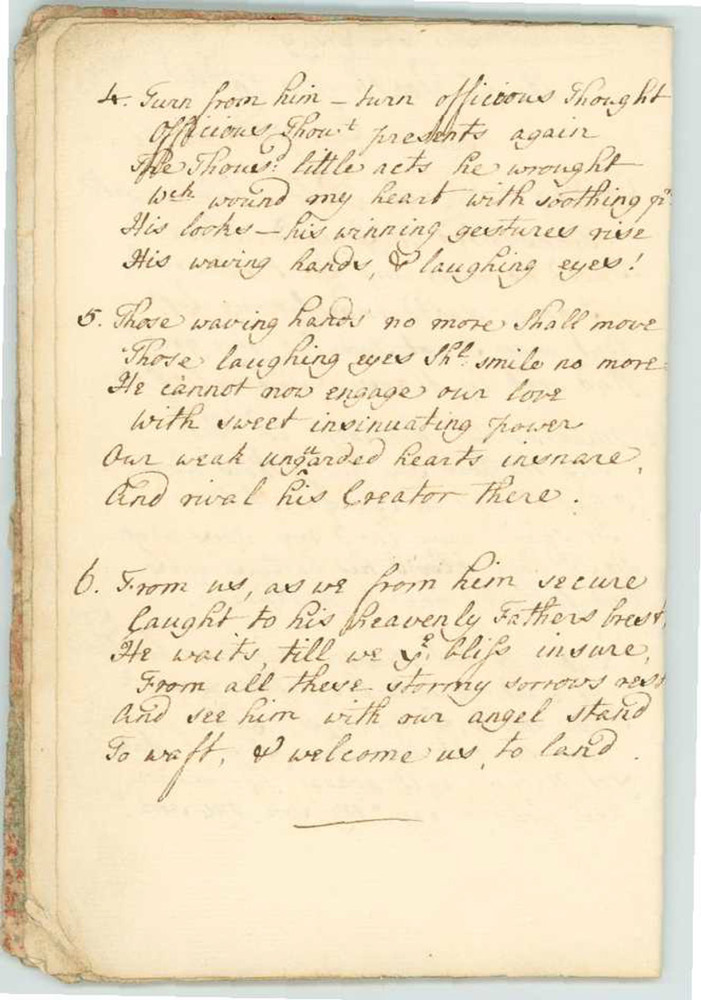 4. Turn from him – turn officious Thought
Officious Thout presents again
The Thousd little acts he wrought
Wch wound my heart with soothing
His looks – his winning gestures rise
His waving hands, & laughing eyes!
5. Those waving hands no more shall move
Those laughing eyes Shl smile no more
He cannot now engage our love
With sweet insinuating power
Our weak unguarded hearts insnare,
And rival his Creator there.
6. From us, as we from him secure
Caught to his heavenly Fathers brest,
He waits, till we ye bliss insure,
From all these stormy sorrows rest
And see him with our angel stand
To waft, & welcome us, to land.